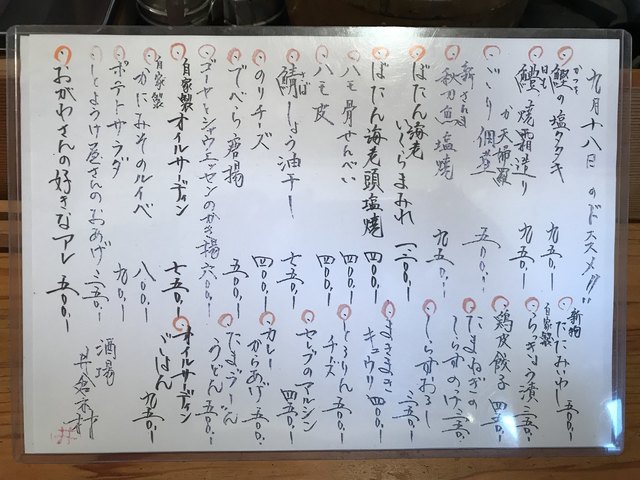 九月十八日 のオススメダ!!
鰹の塩タタキ 九五〇.ー
鱧 焼霜造り か 天婦羅 九五〇.ー
にこり 個室 五〇〇.ー
新さんま 秋刀魚塩焼 九五〇.ー
ぼたん海老いくらまみれ 一二〇〇.ー
ぼたん海老頭塩焼 四〇〇.ー
ハモ骨せんべい 四〇〇.ー
ハモ皮 四〇〇.ー
鯖しょう油干し 七五〇.ー
のりチーズ 四〇〇.ー
でべら唐揚 五〇〇.ー
ゴーヤとシャウエッセンのかき揚 六〇〇.ー
自家製 オイルサーディン 七五〇.ー
自家製 かにみそのルイベ 八〇〇.ー
ポテトサラダ 九〇〇.ー
しょうけ屋さんのおあげ 三五〇.ー
おがわさんの好きなアレ 五〇〇.ー
新物 たたみいわし 五〇〇.ー
自家製 らっきょう漬 三五〇.ー
鶏皮餃子 四五〇.ー
たまねぎのしらすのっけ 三五〇.ー
しらすおろし 三五〇.ー
まきまきキュウリ 四〇〇.ー
とろりんチーズ 四〇〇.ー
セレブのアルシン 四五〇.ー
カレーからあげ 五〇〇.ー
たまごーどんうどん 五〇〇.ー
オイルサーディンごはん 九五〇.ー
酒場 井倉木材